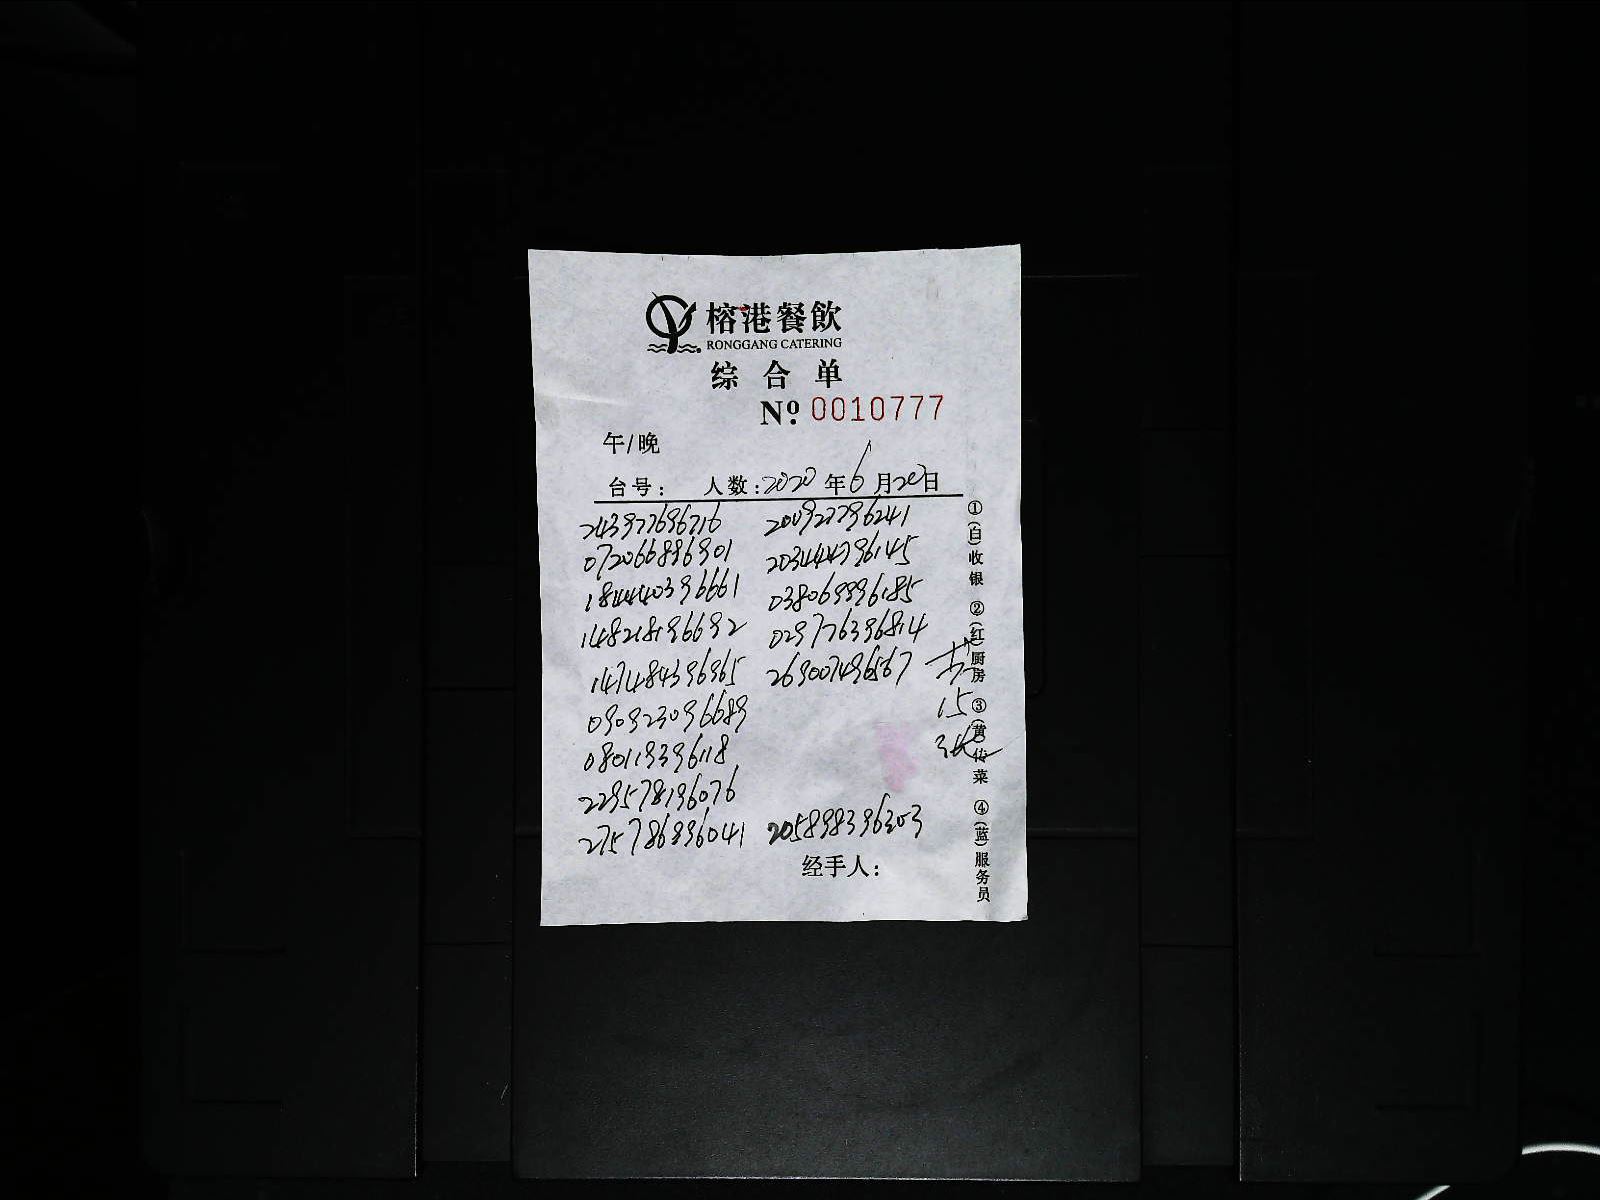 榕港餐飲
RONGGANG CATERING
综合单
Nº 0010777
午/晚
台号: 人数: 2020 年 6 月 20 日
243977696716 200927796241
072066896901 203444796145
184440396661 038069996185
148218196692 029776396814
147484396965 269007496567
090923096689
080119396118
229578196076
275786996041 205898396303
共
15
张
经手人:
①(白)收银 ②(红)厨房 ③(黄)传菜 ④(蓝)服务员